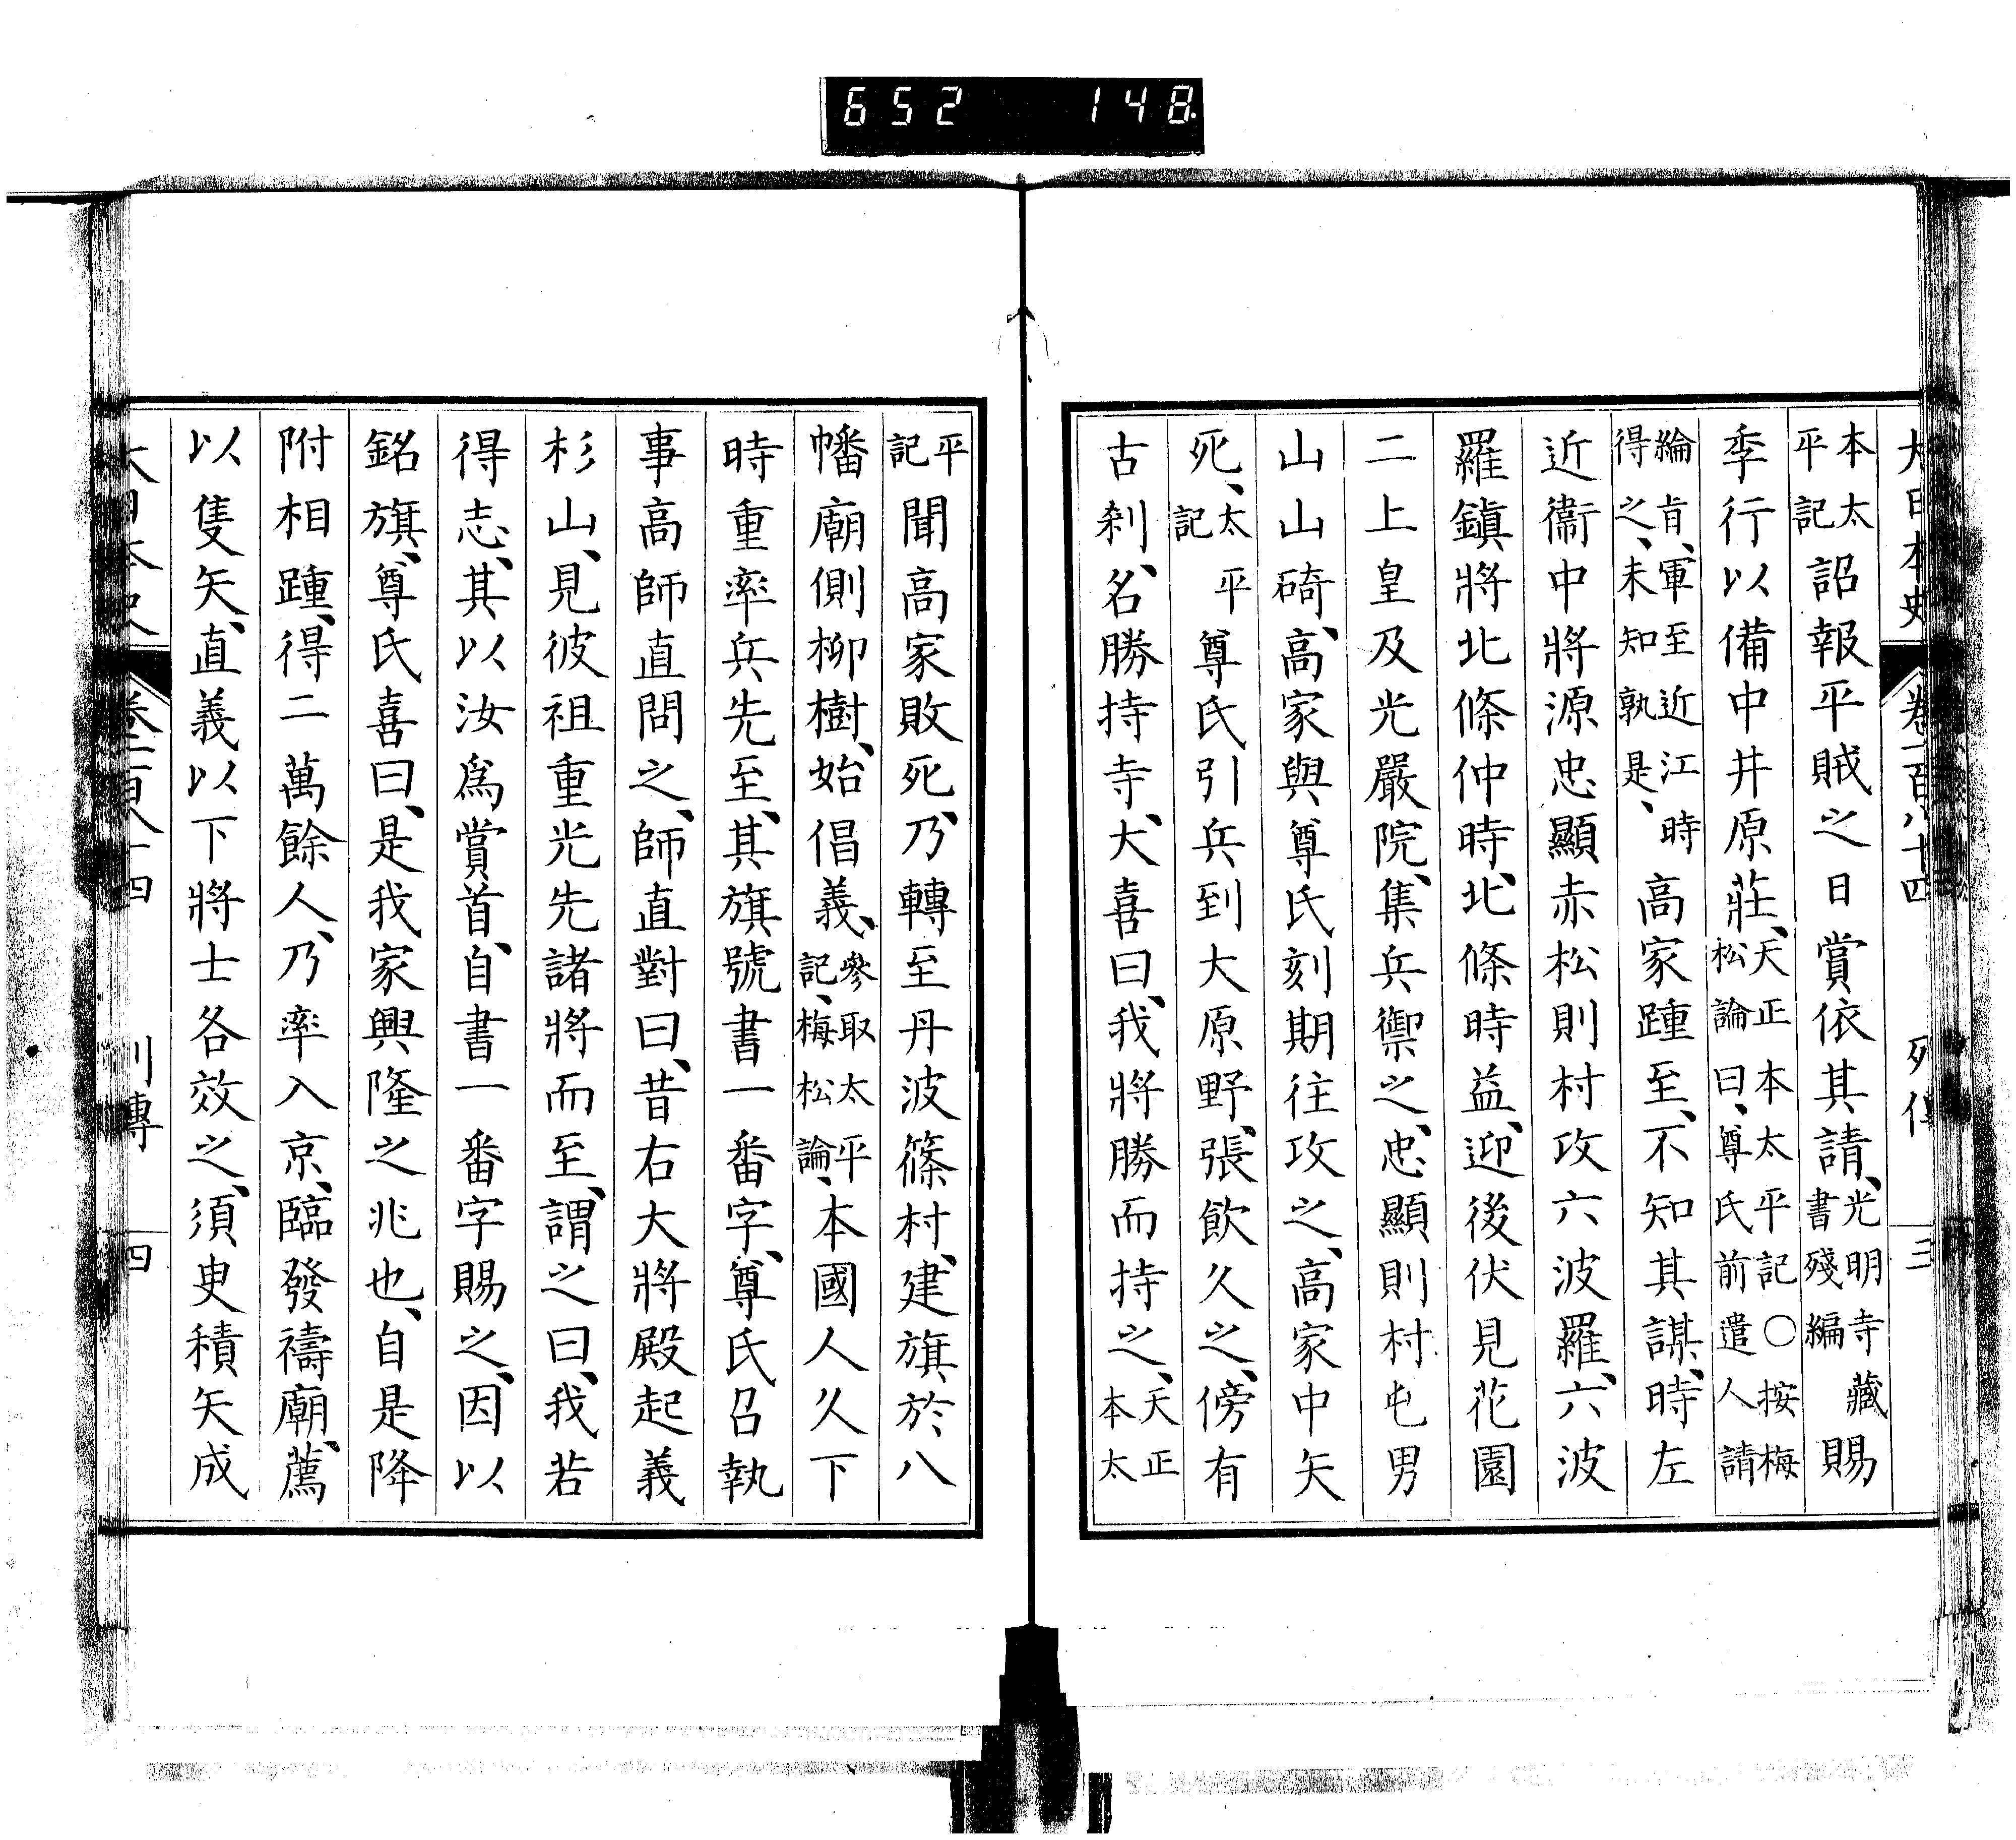 652 148
大日本史 卷一百八十四 列傳 三
本太平記詔報平賊之日賞依其請、光明寺藏書殘編賜
季行以備中井原莊、天正本太平記○按梅松論曰、尊氏前遣人請
綸旨、軍至近江時得之、未知孰是、高家踵至、不知其謀、時左
近衞中將源忠顯赤松則村攻六波羅、六波
羅鎮將北條仲時、北條時益、迎後伏見花園
二上皇及光嚴院、集兵禦之、忠顯則村屯男
山山碕、高家與尊氏刻期往攻之、高家中矢
死、太平記尊氏引兵到大原野、張飲久之、傍有
古刹、名勝持寺、大喜曰、我將勝而持之、天正本太
平記聞高家敗死、乃轉至丹波篠村、建旗於八
幡廟側柳樹、始倡義、參取太平記、梅松論、本國人久下
時重率兵先至、其旗號書一番字、尊氏召執
事高師直問之、師直對曰、昔右大將殿起義
杉山、見彼祖重光先諸將而至、謂之曰、我若
得志、其以汝爲賞首、自書一番字賜之、因以
銘旗、尊氏喜曰、是我家興隆之兆也、自是降
附相踵、得二萬餘人、乃率入京、臨發禱廟、薦
以隻矢、直義以下將士各效之、須臾積矢成
大日本史 卷一百八十四 列傳 四